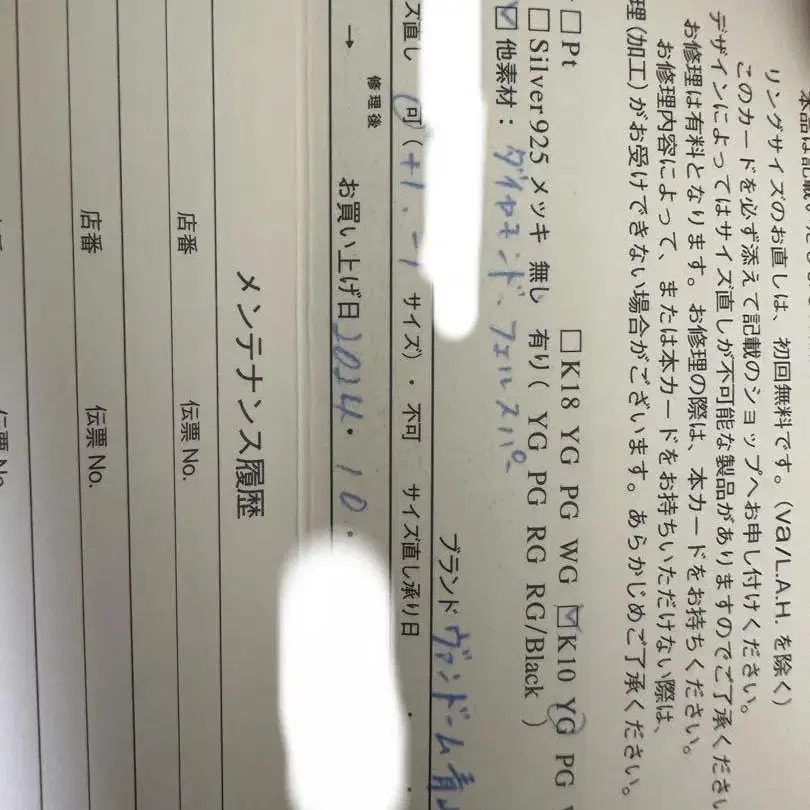 リングサイズのお直しは、初回無料です。(va/L.A.H. を除く)
このカードを必ず添えて記載のショップへお申し付けください。
デザインによってはサイズ直しが不可能な製品がありますのでご了承くださ
お修理は有料となります。お修理の際は、本カードをお持ちください。
お修理内容によって、または本カードをお持ちいただけない際は、
理(加工)がお受けできない場合がございます。あらかじめご了承ください。
□Pt □K18 YG PG WG ☑K10 YG PG
□Silver925 メッキ 無し 有り( YG PG RG RG/Black )
☑他素材: ダイヤモンド、フェルスパー
ブランド ヴァンドーム青山
ズ直し 可(+1、-1 サイズ)・不可 サイズ直し承り日 ・
→ 修理後 お買い上げ日 2024・10・
メンテナンス履歴
店番 伝票 No.
店番 伝票 No.